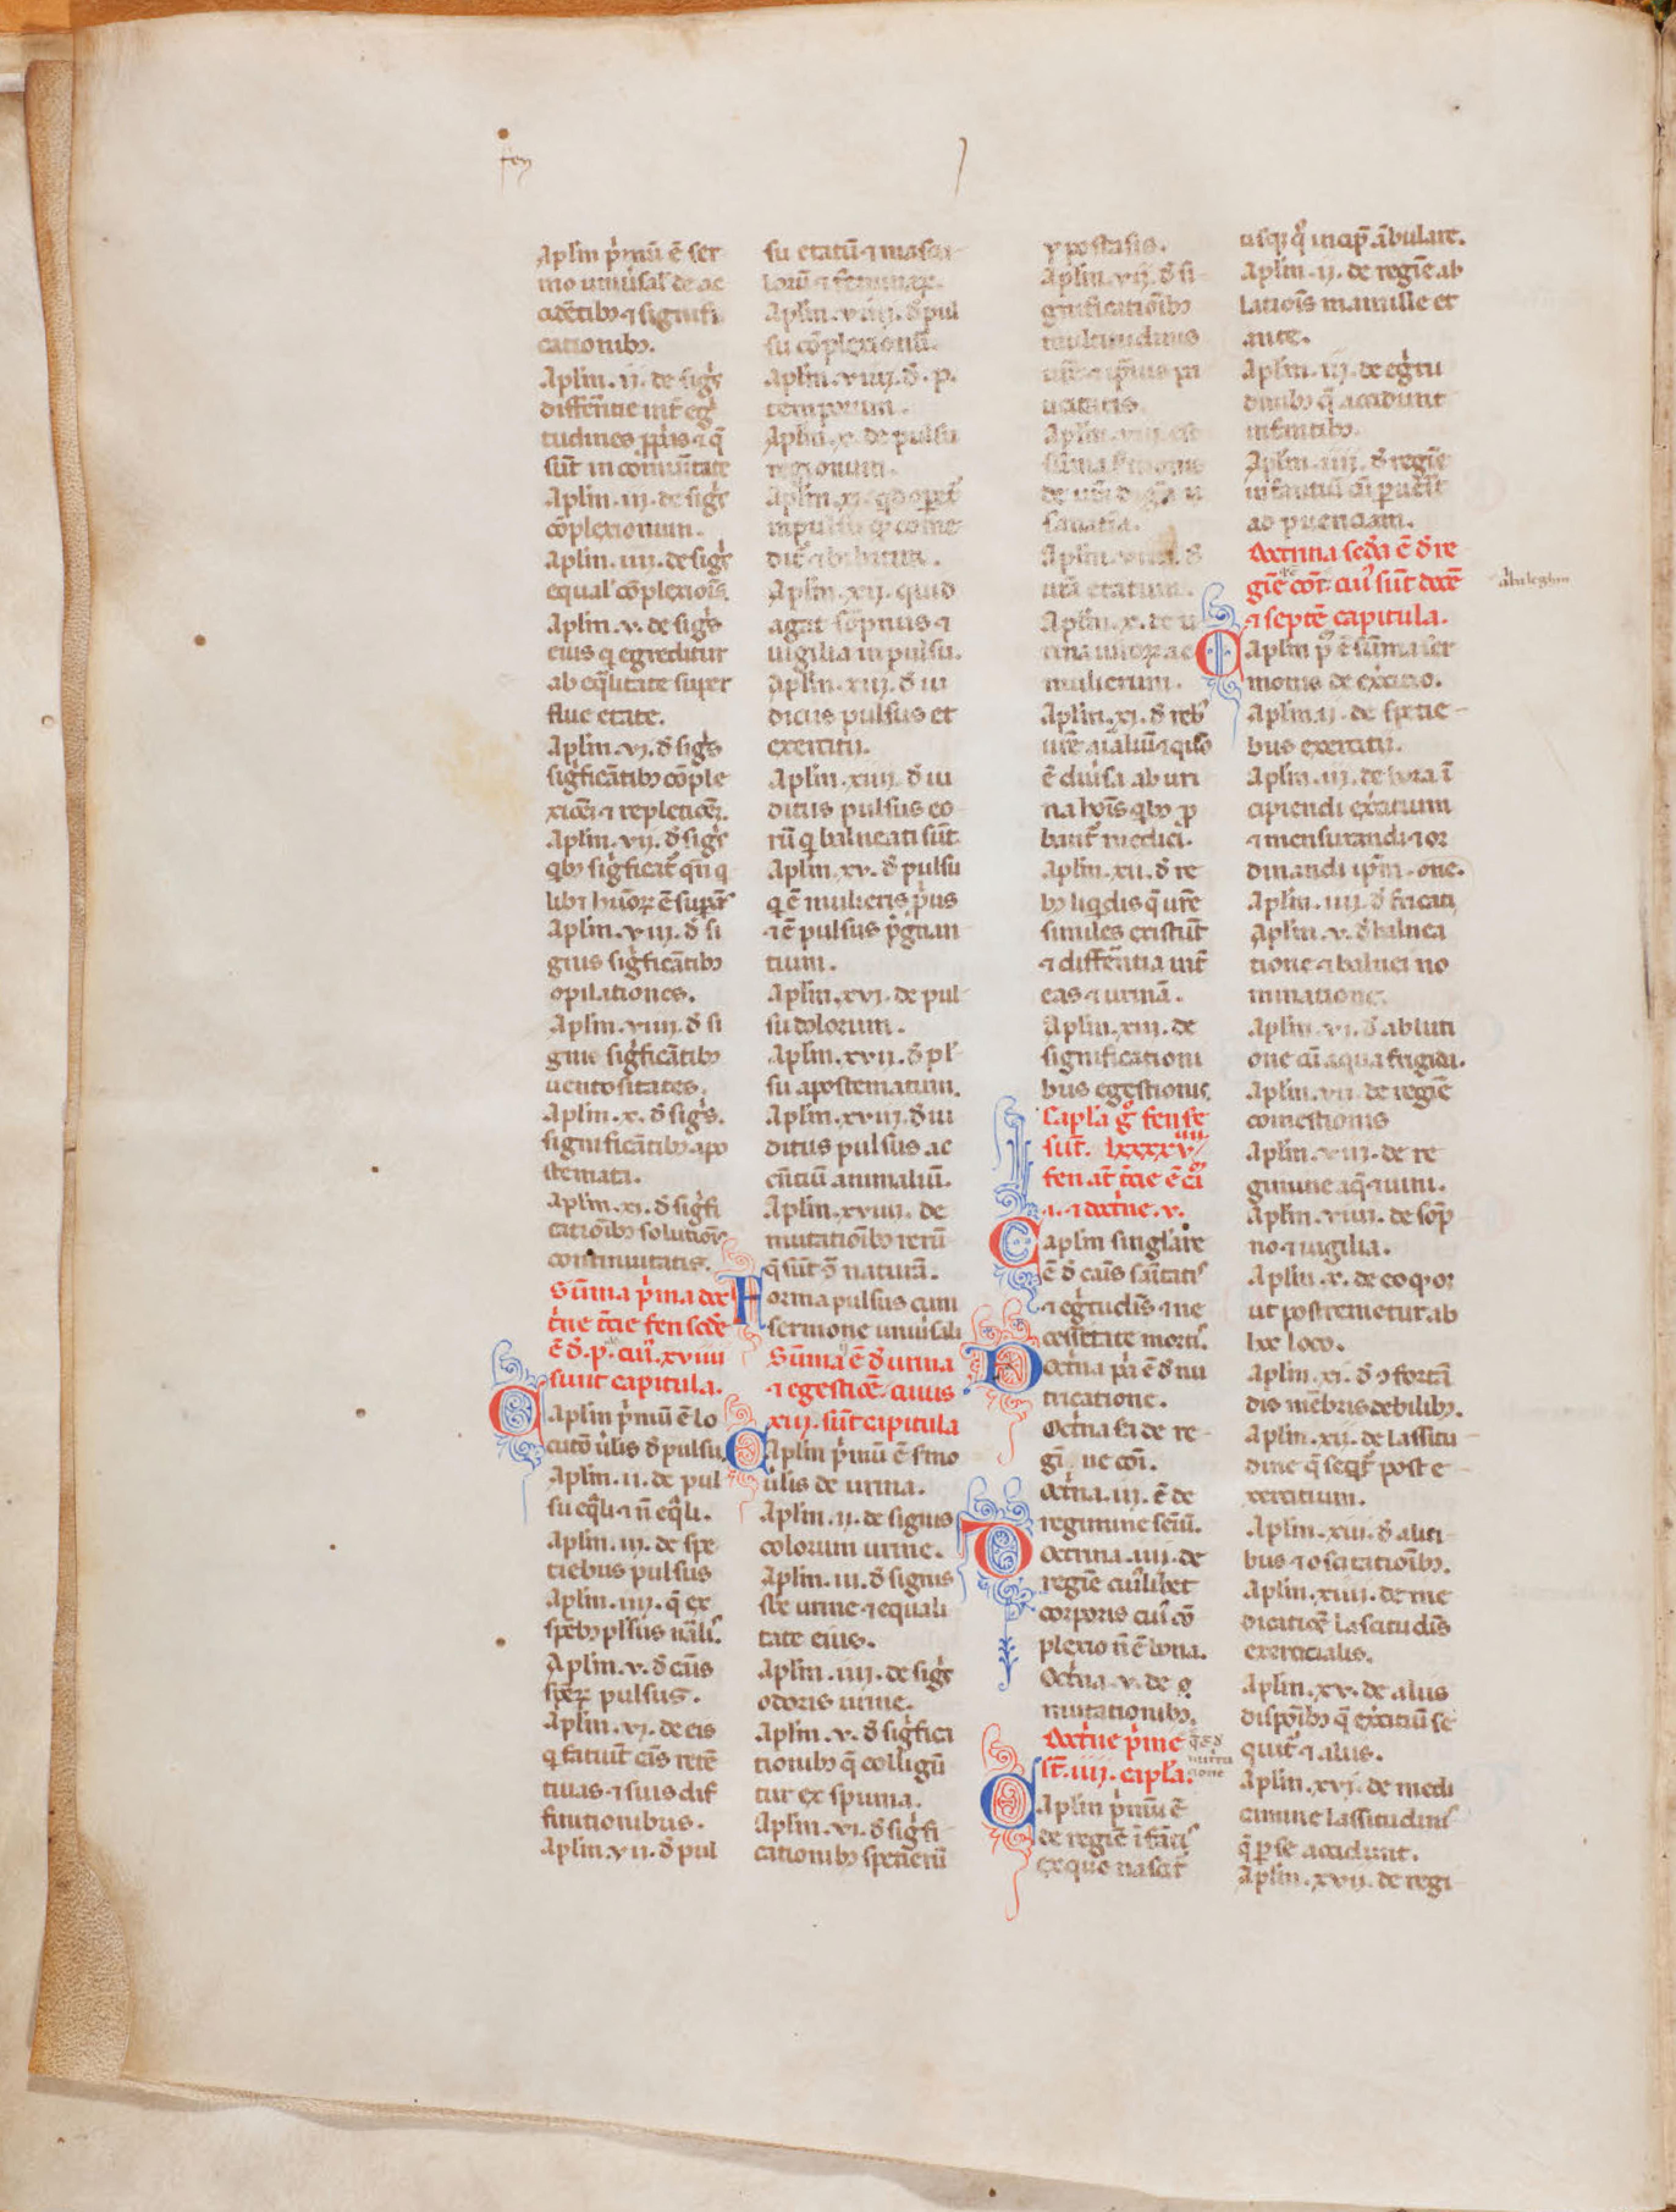 fen
Aplm p̍mū ē ser
mo uniu̍sal' de ac
cid̄etib⁊ ⁊ signifi
cationib⁊.
Aplm. ii. de sigs̍
diffēntie int̄ eg̍
tudines pp̍is ⁊ q̄
sūt in cōmūitate
Aplm. iii. de sigs̍
cōplexionum.
Aplm. iiii. de sigs̍
equal' cōplexiois̄.
Aplm. v. de sigs̍
eius q egreditur
ab eq̄litate super
flue etate.
Aplm. vi. đ sigs̍
sig̍ficātib⁊ cōple
xiōꝫ ⁊ repletiōꝫ.
Aplm. vii. đ sigs̍
qb⁊ sig̍ficat̄ qn̄ q
libꝫ hūoꝝ ē sup̄at̄
Aplm. viii. đ si
gnis sig̍ficātib⁊
opilationes.
Aplm. viiii. đ si
gnis sig̍ficātib⁊
uentositates.
Aplm. x. đ sigs̍.
significātib⁊ apo
stemata.
Aplm. xi. đ sig̍fi
catioīb⁊ solutiois̄
continuitatis.
Sūma p̍ma doc
t̍ne t̍cie fen sc̄de
ē đ. p. cui̍. xviiii
sunt capitula.
Caplm p̍mū ē lo
cutō ūlis đ pulsu.
Aplm. ii. de pul
su eq̄li ⁊ n̄ eq̄li.
Aplm. iii. de spe
ciebus pulsus
Aplm. iiii. q̄ ex
speb⁊ plsus nāli.
Aplm. v. đ cūs
speꝝ pulsus.
Aplm. vi. de eis
q faciūt cīs retē
tiuas ⁊ suis dif
finitionibus.
Aplm. vii. đ pul
su etatū ⁊ mascu
loꝝ ⁊ feminaꝝ.
Aplm. viii. đ pul
su cōplexionū.
Aplm. viiii. đ. p.
temporum.
Aplm. x. de pulsu
regionum.
Aplm. xi. qđ opat̄
in pulsu q come
dit̄ ⁊ bibitur.
Aplm. xii. quid
agat sōpnus ⁊
uigilia in pulsu.
Aplm. xiii. đ iu
diciis pulsus et
exercitii.
Aplm. xiiii. đ iu
diciis pulsus eo
rū q balneati sūt.
Aplm. xv. đ pulsu
q ē mulieris p̍us
⁊ ē pulsus p̍gnan
tium.
Aplm. xvi. de pul
su dolorum.
Aplm. xvii. đ pl'
su apostematum.
Aplm. xviii. đ iu
diciis pulsus ac
cn̄tiū animaliū.
Aplm. xviiii. de
mutatioīb⁊ rerū
q̄ sūt ꝯ naturā.
Forma pulsus cum
sermone uniu̍sali
Sūma ē đ urina
⁊ egestiōe cuius
xiii. sūt capitula
Caplm p̍mū ē s̍mo
ūlis de urina.
Aplm. ii. de signis
colorum urine.
Aplm. iii. đ signis
sb̄e urine ⁊ equali
tate eius.
Aplm. iiii. de sigs̍
odoris urine.
Aplm. v. đ sig̍fica
tionib⁊ q̄ colligū
tur ex spuma.
Aplm. vi. đ sig̍fi
cationib⁊ specierū
ypostasis.
Aplm. vii. đ si
gnificatioīb⁊
multitudinis
Aplm. viii. est
Aplm. viiii. đ
urā etatum.
Aplm. x. de u
rina uiroꝝ ac
mulierum.
Aplm. xi. đ reb̍
urīe aīaliū ⁊ qūo
ē diuisa ab uri
na hoīs qb⁊ p
bant̄ medici.
Aplm. xii. đ re
b⁊ liqdis q̄ urīe
similes existūt
⁊ diffēntia int̄
eas ⁊ urinā.
Aplm. xiii. de
significationi
bus egestionis.
Capl̄a g̍ fen se
sūt. lxxxxv iiii
fen at̄ t̍cie ē cā
.i. ⁊ doct̍ne. v.
Caplm sing̍lare
ē đ cāis sāitati̍
⁊ eg̍tudīs ⁊ ne
cessitate mortī.
Doct̍na p̍a ē đ nu
tricatione.
Oct̍na sa de re
gi. ne cōi.
Oct̍na. iii. ē de
regimine senū.
Doctrina. iiii. de
regīe cui̍libet
corporis cui̍ cō
plexio n̄ ē bona.
Oct̍na. v. de p
mutationib⁊.
Doct̍ne p̍me
st̄. iiii. capl̄a.
Caplm p̍mū ē
de regīe īfāti̍
ex quo nascit̄
usq; q̊ incip̄. ābulare.
Aplm. ii. de regīe ab
latiois̄ mamille et
ante.
Aplm. iii. de eg̍tu
dinib⁊ q̄ accidunt
infantib⁊.
Aplm. iiii. đ regīe
infantiū cū puen̄t
ad puericiam.
Doctrina sc̄da ē đ re
gīe cōī. cui̍ sūt decē
⁊ septē capitula.
Caplm p̍ ē sūma ser
monis de exc̍icio.
Aplm. ii. de specie
bus exercitii.
Aplm. iii. de hora ī
cipiendi exc̍icium
⁊ mensurandi ⁊ or
dinandi ip̄m. one.
Aplm. iiii. đ fricati
Aplm. v. đ balnea
tione ⁊ balnei no
minatione.
Aplm. vi. đ abluti
one cū aqua frigida.
Aplm. vii. de regīe
comestionis
Aplm. viii. de re
gimine aq̄ ⁊ uini.
Aplm. viiii. de sōp
no ⁊ uigilia.
Aplm. x. de eo qđ or
ut postremetur ab
hoc loco.
Aplm. xi. đ ꝯfortā
dis mēbris debilib⁊.
Aplm. xii. de lassitu
dine q̄ seqt̄ post e
xercitium.
Aplm. xiii. đ aliti
bus ⁊ oscitatioīb⁊.
Aplm. xiiii. de me
dicatiōe lascitudīs
exercicialis.
Aplm. xv. de aliis
dispoīb⁊ q̄ exc̍itiū se
quit̄ ⁊ aliis.
Aplm. xvi. de medi
cimine lassitudini̍
q̄ p se accidunt.
Aplm. xvii. de regi